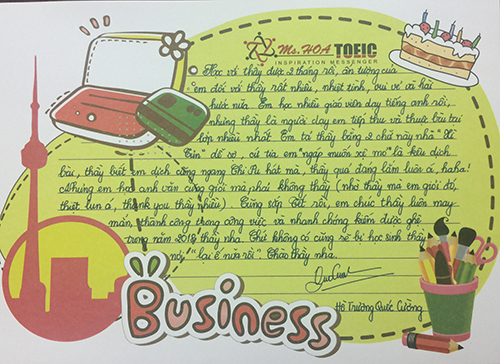 Ms. HOA TOEIC
INSPIRATION MESSENGER
Học với thầy được 2 tháng rồi, ấn tượng của
em đối với thầy rất nhiều, nhiệt tình, vui vẻ hài
hước nữa. Em học nhiều giáo viên dạy tiếng anh rồi,
nhưng thầy là người dạy em tiếp thu và thuộc bài tại
lớp nhiều nhất. Em tả thầy bằng 2 chữ này nha
dễ sợ, cứ tía em "ngáp muốn xỉ mo" là kêu dịch
bài, thầy biết em dịch cũng ngang Chi Pu hát mà, thầy quá đáng lắm luôn á, haha!
Nhưng em học anh văn cũng giỏi mà phải không thầy (nhờ thầy mà em giỏi đó,
thiệt lun á, thank you thầy nhiều) Cũng sắp Tết rồi, em chúc thầy luôn may
mắn, thành công trong công việc và nhanh chóng kiếm được ghệ
trong năm 2018 thầy nha. Chứ không có cũng sẽ bị học sinh thầy
nói "lại ế nữa rồi". Chào thầy nha.
Hồ Trường Quốc Cường
Business